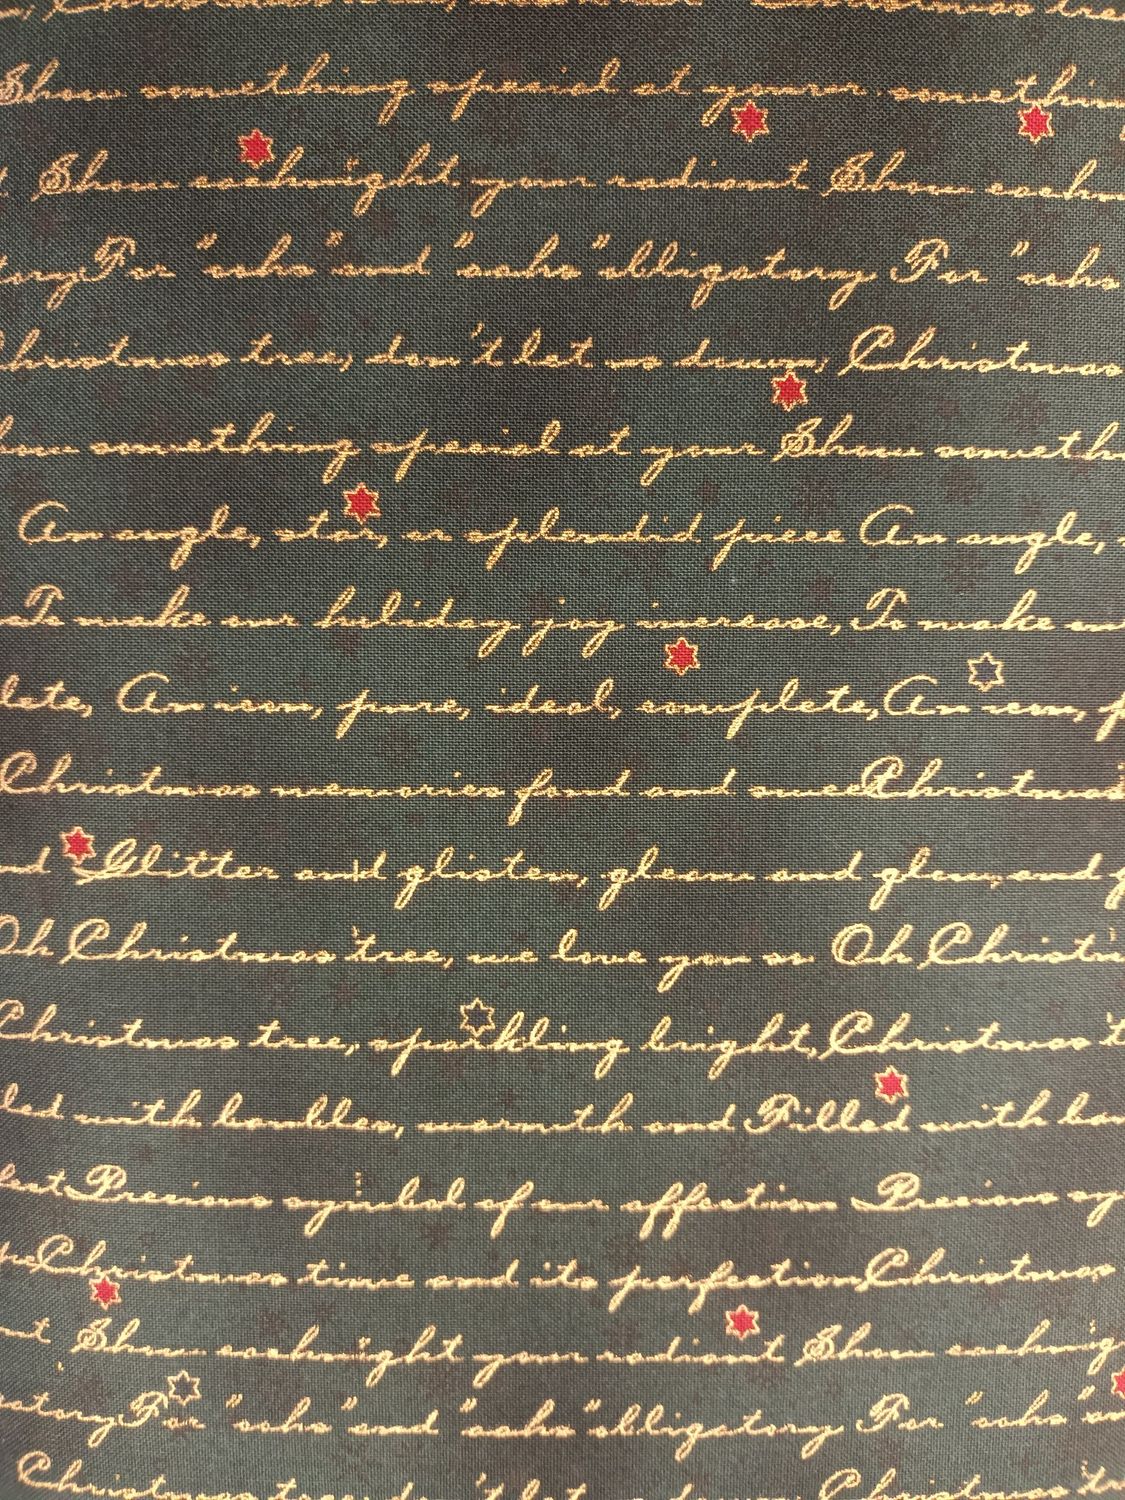 Christmas tree
Show something special at your somethin
Show eachnight your radiant Show eachn
toryFor "oohs" and "aahs" obligatory For "oohs
Christmas tree, don't let us down, Christmas
how something special at your Show someth
An angle, star, or splendid piece An angle,
To make our holiday joy increase, To make ou
lete, An icon, pure, ideal, complete, An icon, p
Christmas memories fond and sweetChristmas
nd Glitter and glisten, gleam and glow, and g
Oh Christmas tree, we love you so Oh Christm
Christmas tree, sparkling bright, Christmas t
led with baubles, warmth and Filled with bau
Precious symbol of our affection Precious sy
peChristmas time and its perfection,Christmas
nt Show eachnight your radiant Show eachnig
gatoryFor "oohs" and "aahs" obligatory For "oohs" an
Christmas tree, don't let us down, Christmas tr